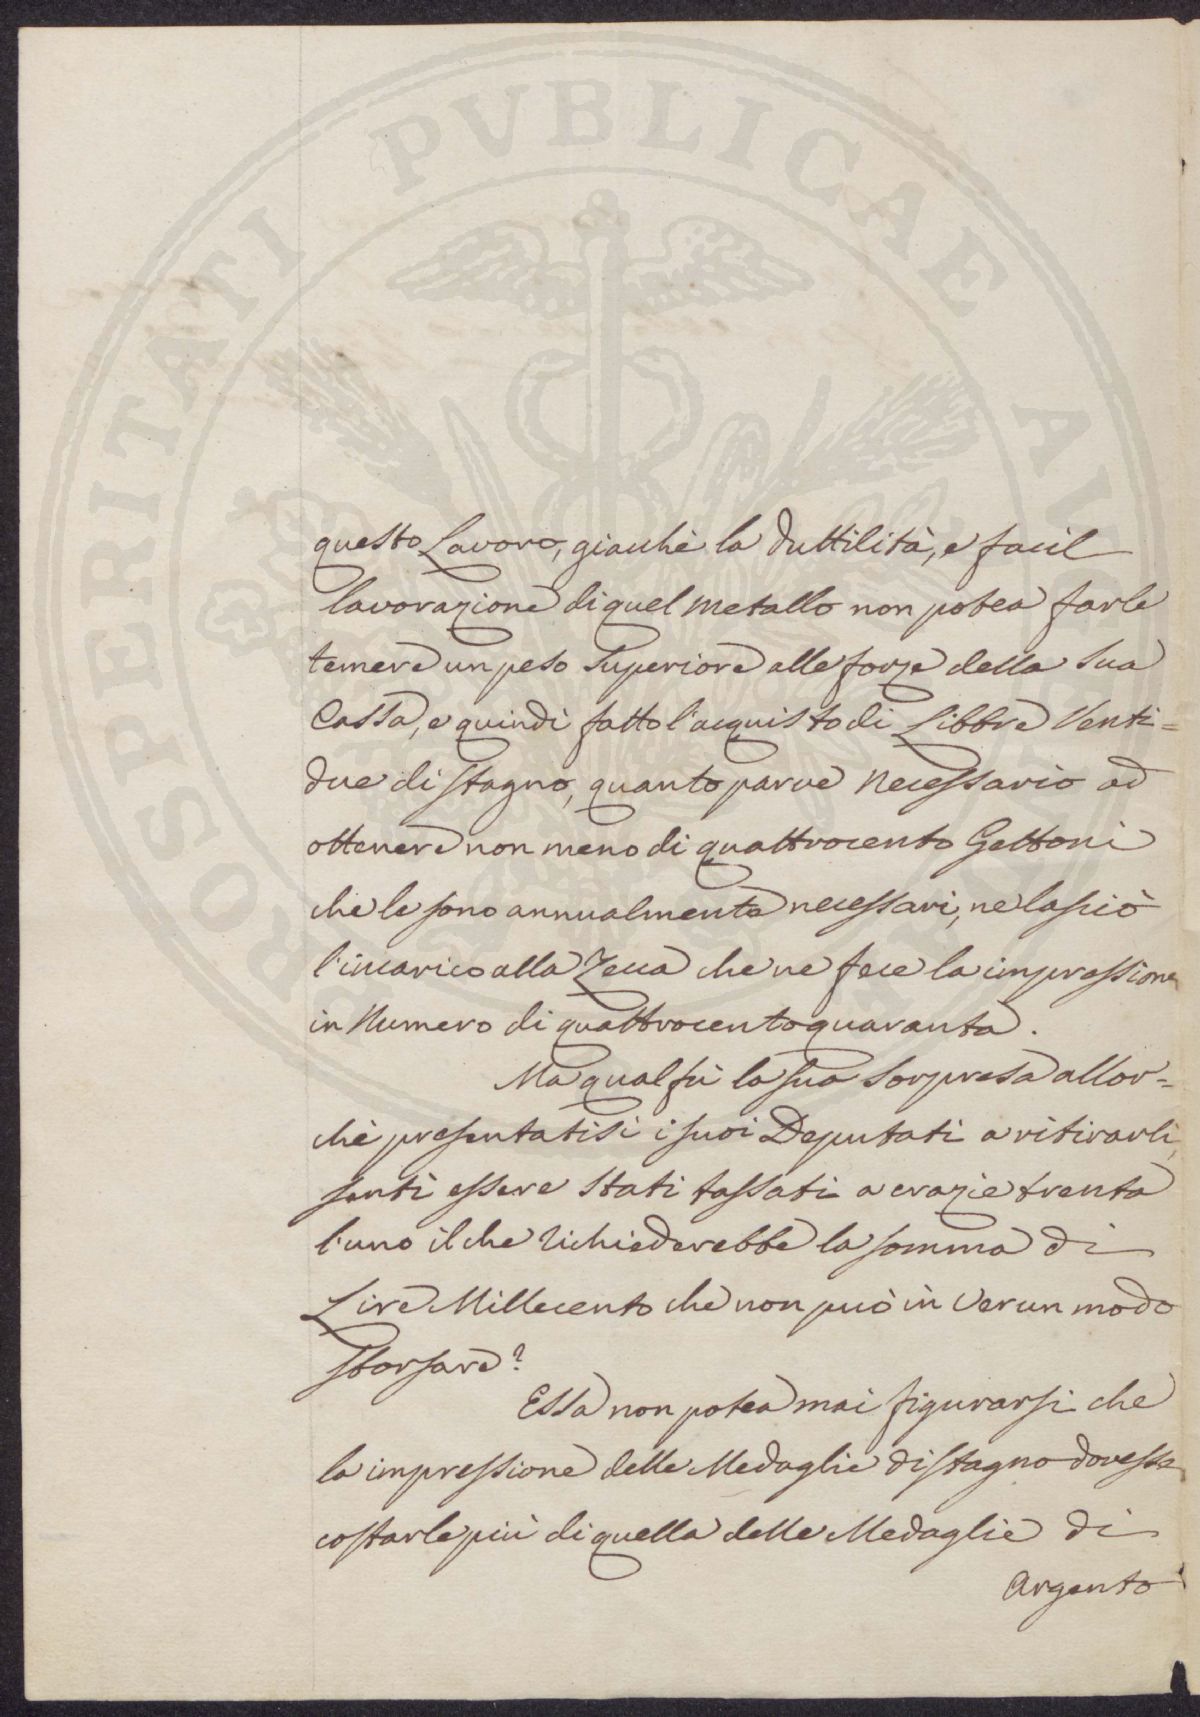 PROSPERITATI PUBLICAE AU
questo Lavoro, giacchè la duttilità, e facil
lavorazione di quel metallo non potea farle
temere un peso superiore alle forze della sua
Cassa, e quindi fatto l'acquisto di Libbre Venti=
due di stagno, quanto parve necessario ad
ottenere non meno di quattrocento Gettoni
che le sono annualmente necessari, ne lasciò
l'incarico alla Zecca che ne fece la impressione
in Numero di quattrocentoquaranta.
Ma qual fù la sua sorpresa allor=
chè presentatisi i suoi Deputati a ritirarli,
sentì essere stati tassati a crazie trenta
l'uno il che richiederebbe la somma di
Lire Millecento che non può in verun modo
sborsare?
Essa non potea mai figurarsi che
la impressione delle Medaglie di stagno dovesse
costarle più di quella delle Medaglie di
Argento